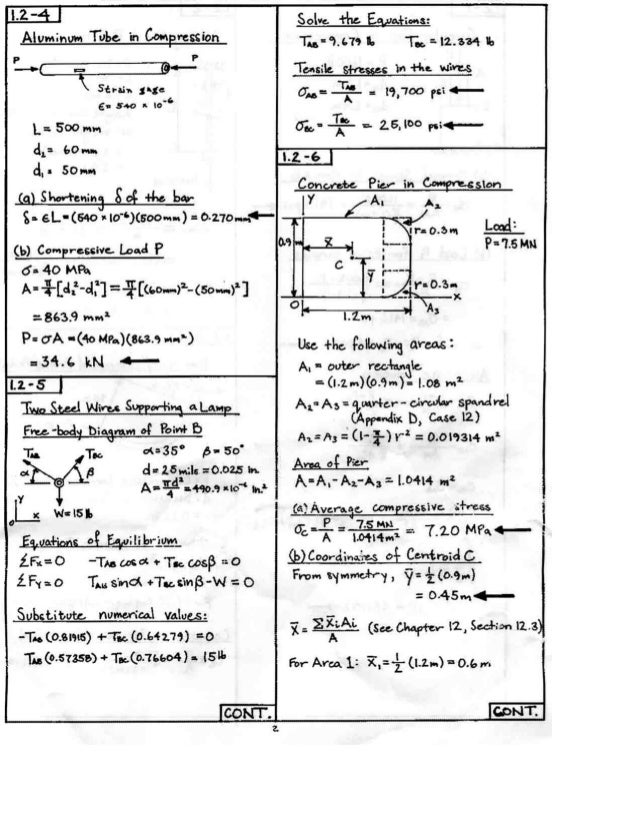 1.2-4
Aluminum Tube in Compression
P P
Strain gage
ε = 540 × 10⁻⁶
L = 500 mm
d₂ = 60 mm
d₁ = 50 mm
(a) Shortening δ of the bar
δ = εL = (540 × 10⁻⁶)(500 mm) = 0.270 mm
(b) Compressive Load P
σ = 40 MPa
A = π/4 [d₂² - d₁²] = π/4 [(60mm)² - (50mm)²]
= 863.9 mm²
P = σA = (40 MPa)(863.9 mm²)
= 34.6 kN
1.2-5
Two Steel Wires Supporting a Lamp
Free-body Diagram of Point B
T_AB T_BC α = 35° β = 50°
α β d = 25 mils = 0.025 in.
A = πd²/4 = 490.9 × 10⁻⁶ in.²
Y
x W = 15 lb
Equations of Equilibrium
ΣFx = 0 -T_AB cos α + T_BC cos β = 0
ΣFy = 0 T_AB sin α + T_BC sin β - W = 0
Substitute numerical values:
-T_AB (0.81915) + T_BC (0.64279) = 0
T_AB (0.57358) + T_BC (0.76604) = 15 lb
CONT.
Solve the Equations:
T_AB = 9.679 lb T_BC = 12.334 lb
Tensile stresses in the wires
σ_AB = T_AB/A = 19,700 psi
σ_BC = T_BC/A = 25,100 psi
1.2-6
Concrete Pier in Compression
Y A₁ A₂
r = 0.3m Load:
0.9 m x̄ P = 7.5 MN
C ȳ
r = 0.3m
O x
1.2m A₃
Use the following areas:
A₁ = outer rectangle
= (1.2m)(0.9m) = 1.08 m²
A₂ = A₃ = quarter-circular spandrel
(Appendix D, Case 12)
A₂ = A₃ = (1 - π/4) r² = 0.019314 m²
Area of Pier
A = A₁ - A₂ - A₃ = 1.0414 m²
(a) Average compressive stress
σc = P/A = 7.5 MN/1.0414 m² = 7.20 MPa
(b) Coordinates of Centroid C
From symmetry, ȳ = 1/2 (0.9m)
= 0.45m
x̄ = Σx̄ᵢAᵢ/A (See Chapter 12, Section 12.3)
For Area 1: x̄₁ = 1/2 (1.2m) = 0.6 m
CONT.
2